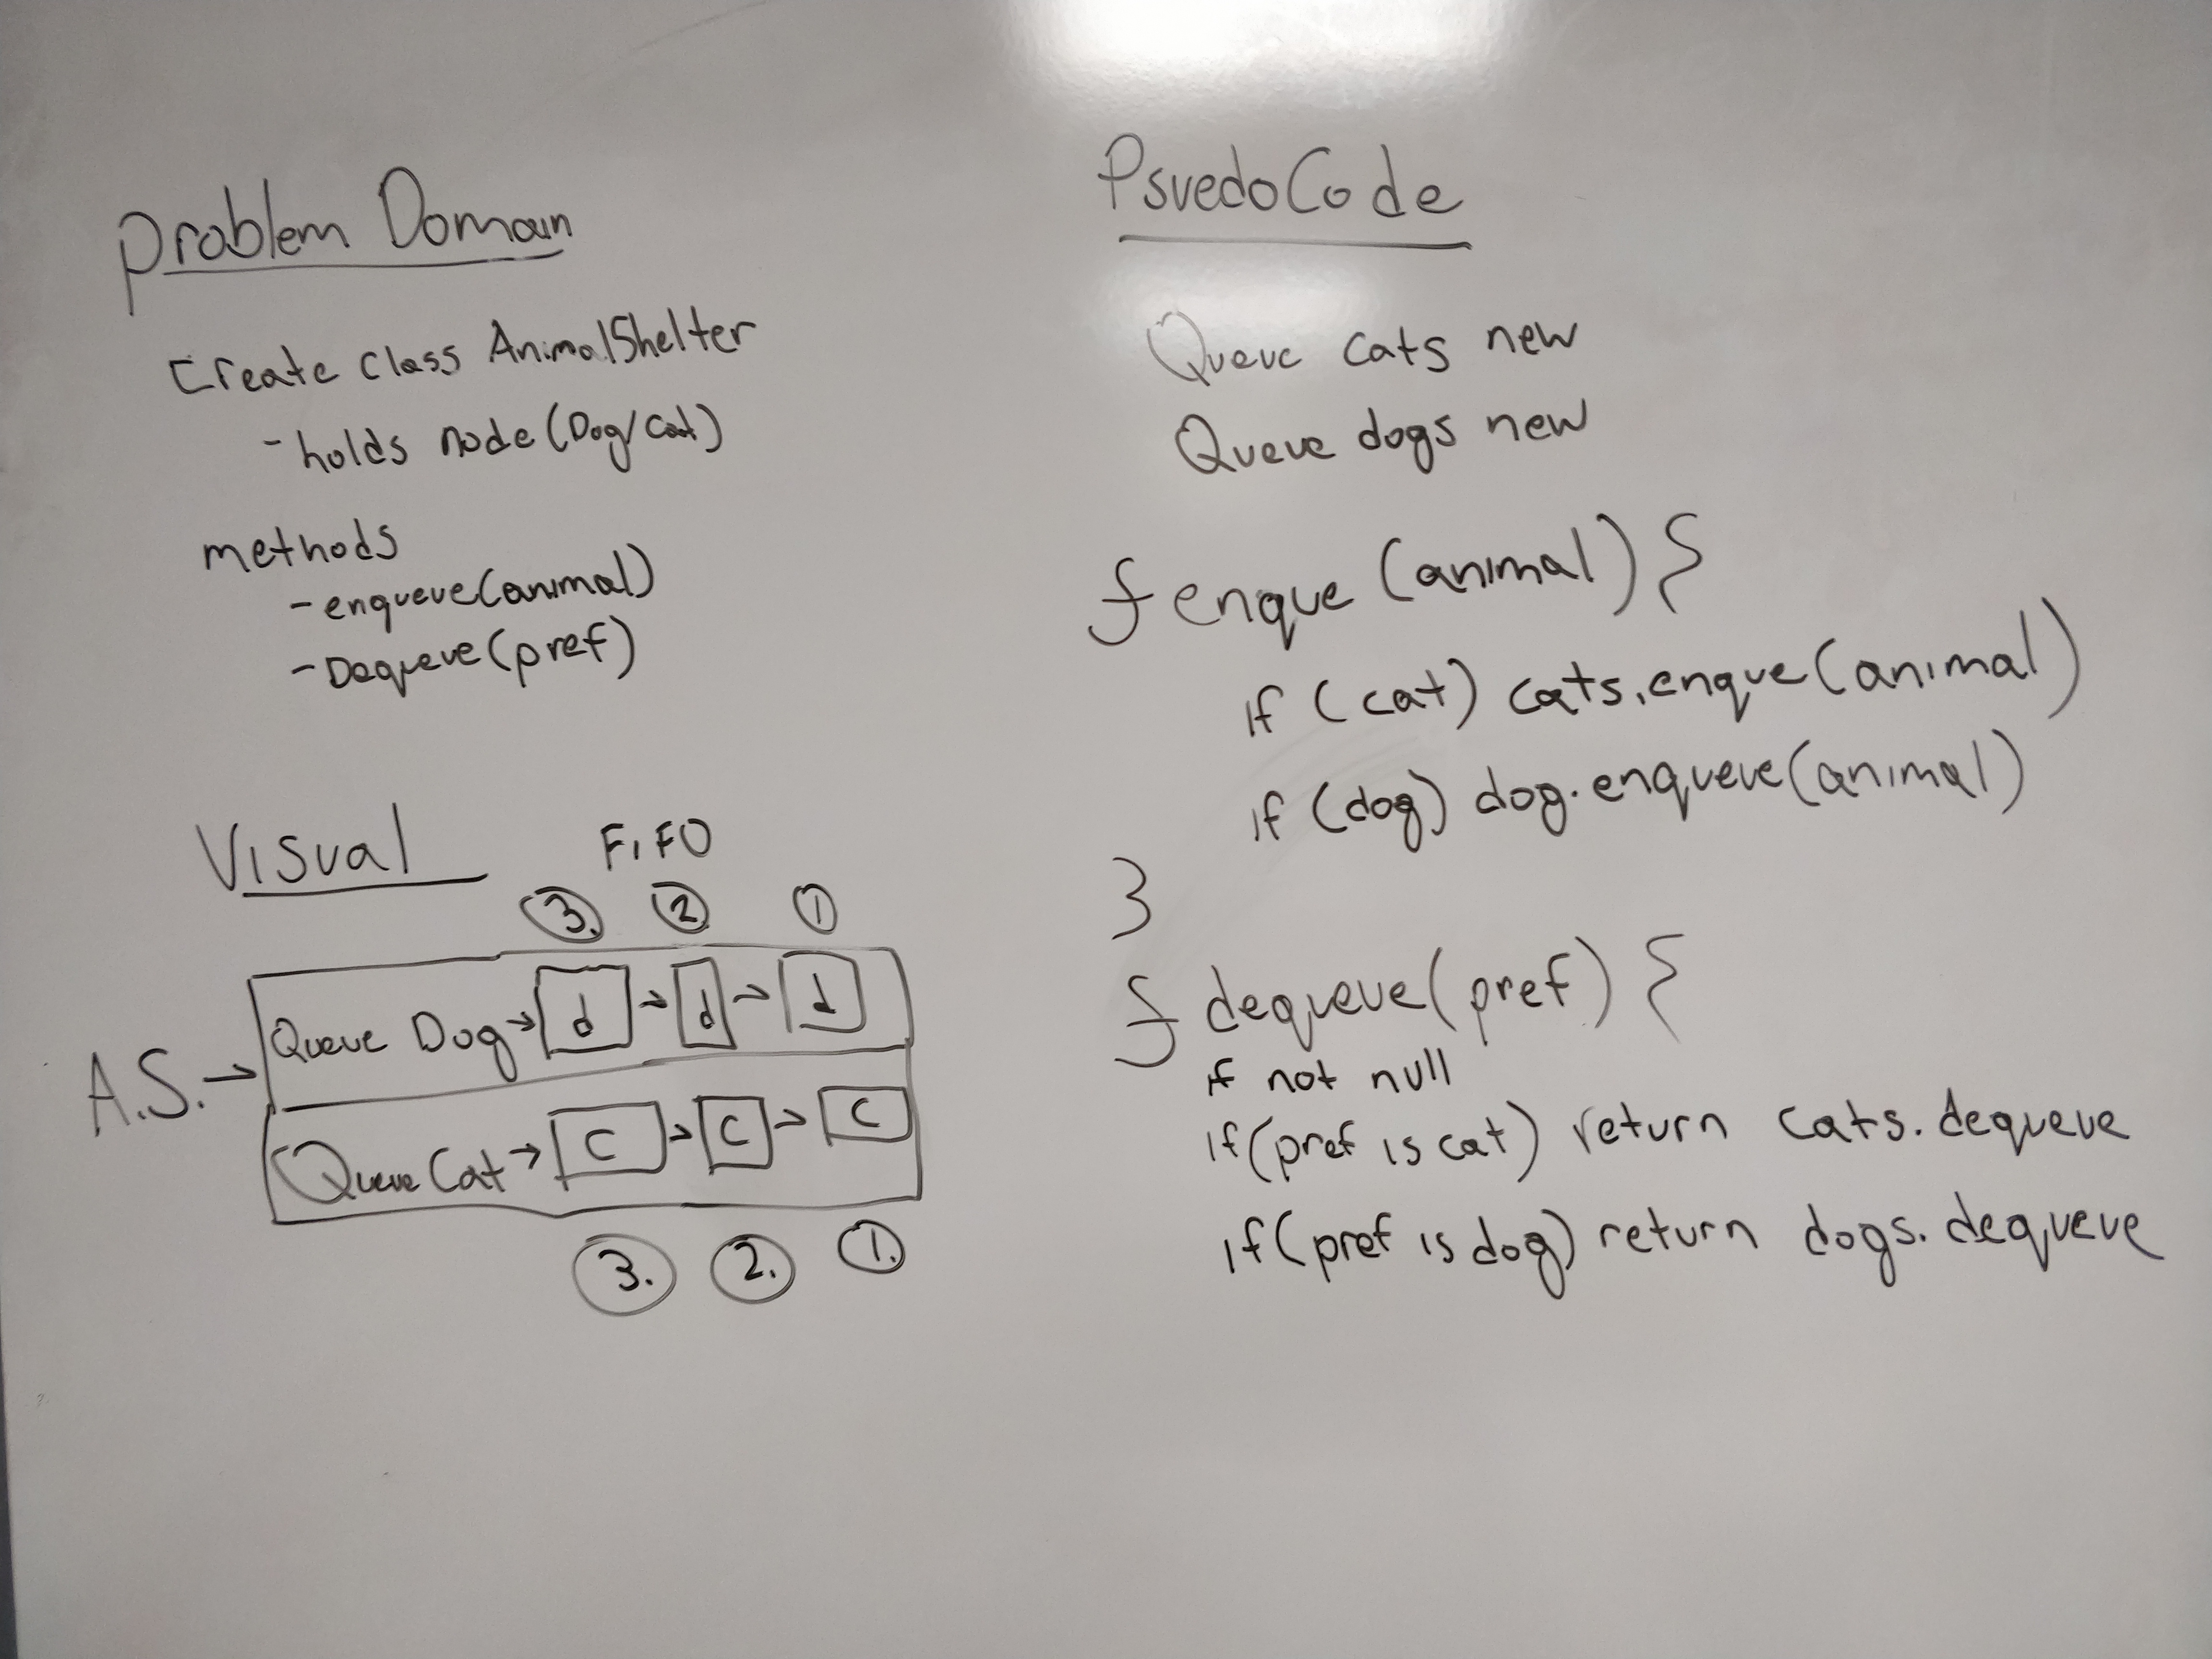 Problem Domain
Create Class AnimalShelter
- holds node (Dog/Cat)
methods
- enqueue(animal)
- Dequeue(pref)
Visual
FIFO
3. 2 1
A.S. →
Queue Dog → d → d → d
Queue Cat → C → C → C
3. 2. 1.
PsuedoCode
Queue cats new
Queue dogs new
f enque (animal) {
if (cat) cats.enque(animal)
if (dog) dog.enqueue(animal)
}
f dequeue(pref) {
if not null
if(pref is cat) return cats.dequeue
if(pref is dog) return dogs.dequeue